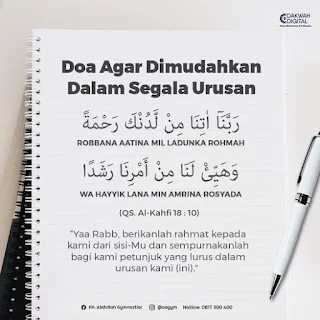 DAKWAH
DIGITAL
Doa Agar Dimudahkan
Dalam Segala Urusan
رَبَّنَآ اٰتِنَا مِنْ لَّدُنْكَ رَحْمَةً
ROBBANA AATINA MIL LADUNKA ROHMAH
وَهَيِّئْ لَنَا مِنْ اَمْرِنَا رَشَدًا
WA HAYYIK LANA MIN AMRINA ROSYADA
(QS. Al-Kahfi 18 : 10)
"Yaa Rabb, berikanlah rahmat kepada
kami dari sisi-Mu dan sempurnakanlah
bagi kami petunjuk yang lurus dalam
urusan kami (ini)."
KH. Abdullah Gymnastiar @aagym Hotline: 0817 300 400